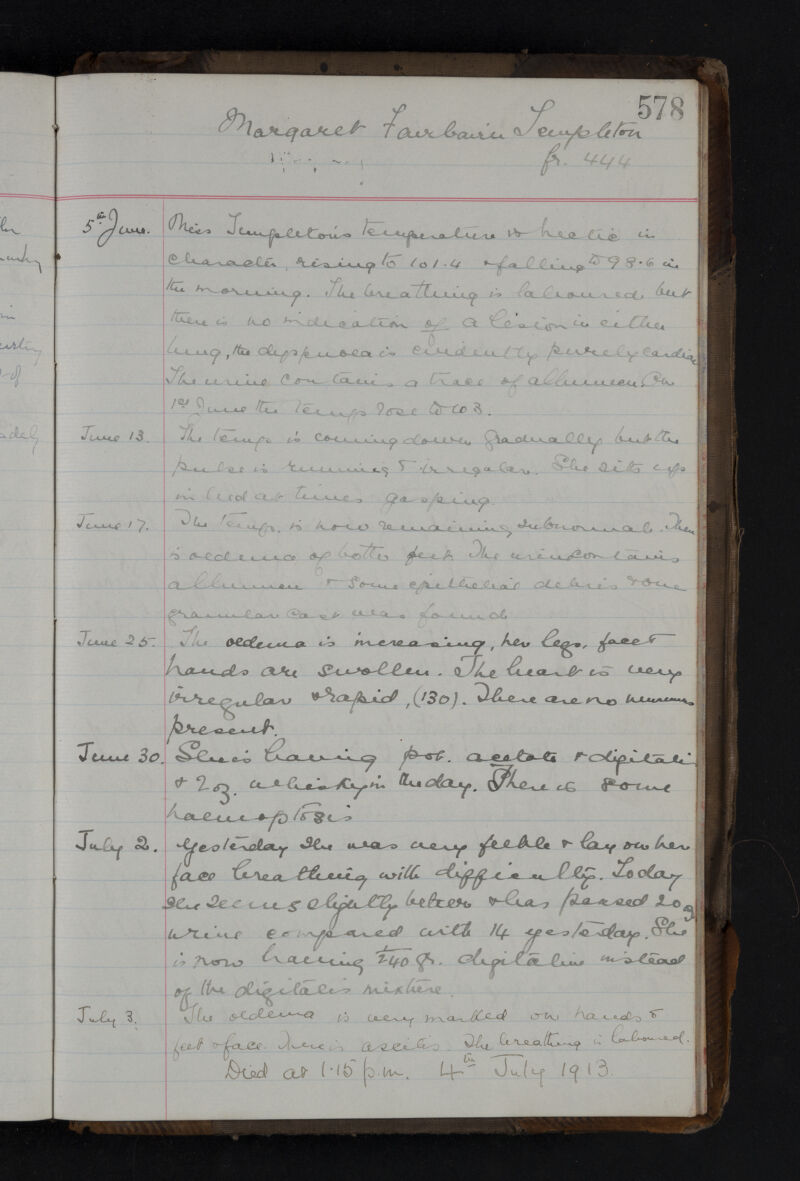 578
Margaret Fairbairn Templeton
fr. 444
5th June. Miss Templeton's temperature is hectic in
character, rising to 101.4 & falling to 98.6 in
the morning. The breathing is laboured but
there is no indication of a lesion in either
lung, the dyspnoea is evidently purely cardiac
The urine contains a trace of albumen. On
1st June the temp. rose to 103.
June 13. The temp. is coming down gradually but the
pulse is running & irregular. She sits up
in bed at times gasping.
June 17. The temp. is now remaining subnormal. There
is oedema of both feet. The urine contains
albumen & some epithelial debris & one
granular cast was found.
June 25. The oedema is increasing, her legs, face &
hands are swollen. The heart is very
irregular & rapid, (130). There are no murmurs
present.
June 30. She is having pot. acetate & digitalis
& 2 oz. whisky in the day. There is some
haemoptosis
July 2. Yesterday she was very feeble & lay on her
face breathing with difficulty. Today
she seems slightly better & has passed 20 oz
urine compared with 14 yesterday. She
is now having 1/240 gr. digitaline instead
of the digitalis mixture.
July 3. The oedema is very marked on hands &
feet & face. There is ascites. The breathing is laboured.
Died at 1.15 p.m. 4th July 1913.